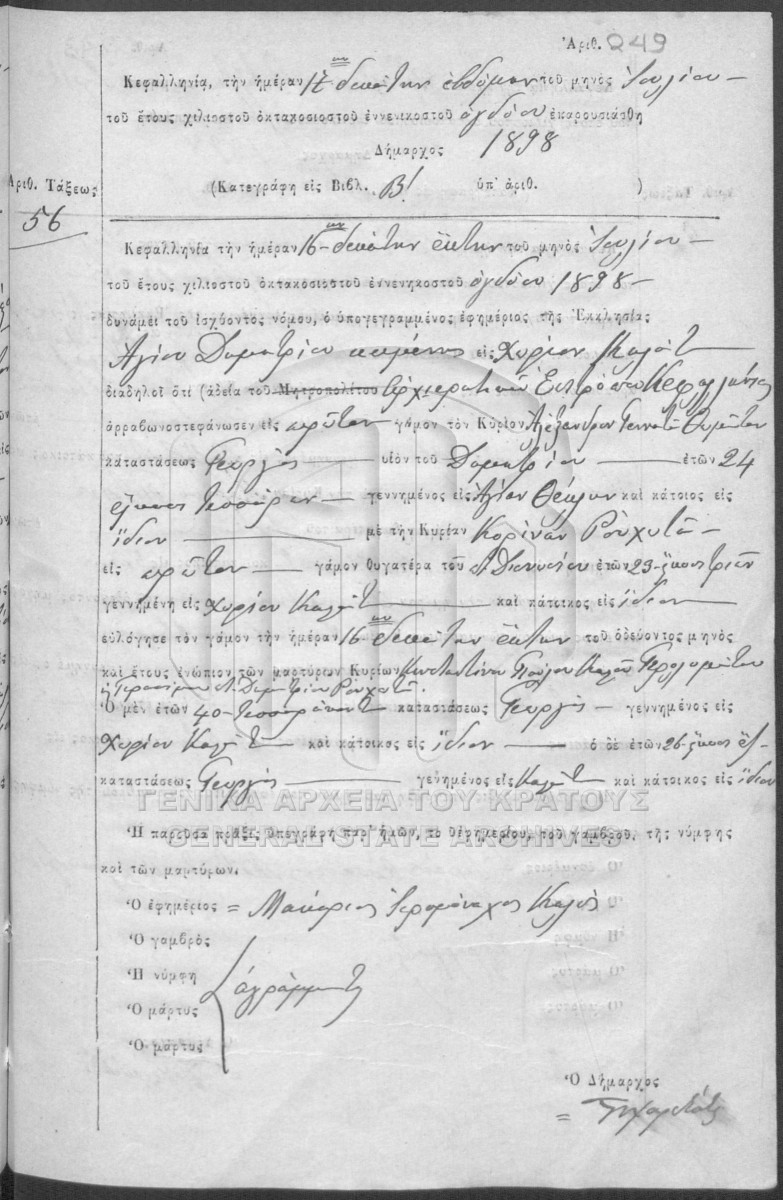 Ἀριθ. 249
Κεφαλληνία, τὴν ἡμέραν 17 δεκάτην ἑβδόμην τοῦ μηνὸς Ἰουλίου
τοῦ ἔτους χιλιοστοῦ ὀκτακοσιοστοῦ ἐννενικοστοῦ ὀγδόου ἐπαρουσιάσθη
Δήμαρχος 1898
Ἀριθ. Τάξεως
(Κατεγράφη εἰς Βιβλ. Β! ὑπ' ἀριθ. )
56
Κεφαλληνία τὴν ἡμέραν 16 δεκάτην ἕκτην τοῦ μηνὸς Ἰουλίου
τοῦ ἔτους χιλιοστοῦ ὀκτακοσιοστοῦ ἐννενηκοστοῦ ὀγδόου 1898
δυνάμει τοῦ ἰσχύοντος νόμου, ὁ ὑπογεγραμμένος ἐφημέριος τῆς Ἐκκλησίας
Ἁγίου Δημητρίου εἰς Χωρίον
διαδηλοῖ ὅτι (ἀδεία τοῦ Μητροπολίτου Κεφαλληνίας
ἀρραβωνοστεφάνωσεν εἰς πρῶτον γάμον τὸν Κύριον Ἀλέξανδρον
καταστάσεως Γεωργὸς υἱὸν τοῦ Δημητρίου ἐτῶν 24
εἴκοσι τεσσάρων γεννημένος εἰς Ἁγίαν Θέκλην καὶ κάτοικος εἰς
ἴδιον μὲ τὴν Κυρίαν
εἰς πρῶτον γάμον θυγατέρα τοῦ Διονυσίου ἐτῶν 23 εἴκοσι τριῶν
γεννημένη εἰς Χωρίον καὶ κάτοικος εἰς ἴδιον
εὐλόγησε τὸν γάμον τὴν ἡμέραν 16 δεκάτην ἕκτην τοῦ ὁδεύοντος μηνὸς
καὶ ἔτους ἐνώπιον τῶν μαρτύρων Κυρίων Κωνσταντίνου
Δημητρίου
Ὁ μὲν ἐτῶν 40 τεσσαράκοντα καταστάσεως Γεωργὸς γεννημένος εἰς
Χωρίον καὶ κάτοικος εἰς ἴδιον ὁ δὲ ἐτῶν 26 εἴκοσι ἓξ
καταστάσεως Γεωργὸς γεννημένος εἰς καὶ κάτοικος εἰς ἴδιον
ΓΕΝΙΚΑ ΑΡΧΕΙΑ ΤΟΥ ΚΡΑΤΟΥΣ
Ἡ παροῦσα πρᾶξις ὑπεγράφη παρ' ἡμῶν, τοῦ ἐφημερίου, τοῦ γαμβροῦ, τῆς νύμφης
GENERAL STATE ARCHIVES
καὶ τῶν μαρτύρων.
Ὁ ἐφημέριος = Μακάριος Ἱερομόναχος
Ὁ γαμβρὸς
Ἡ νύμφη
ἀγράμματοι
Ὁ μάρτυς
Ὁ μάρτυς
Ὁ Δήμαρχος